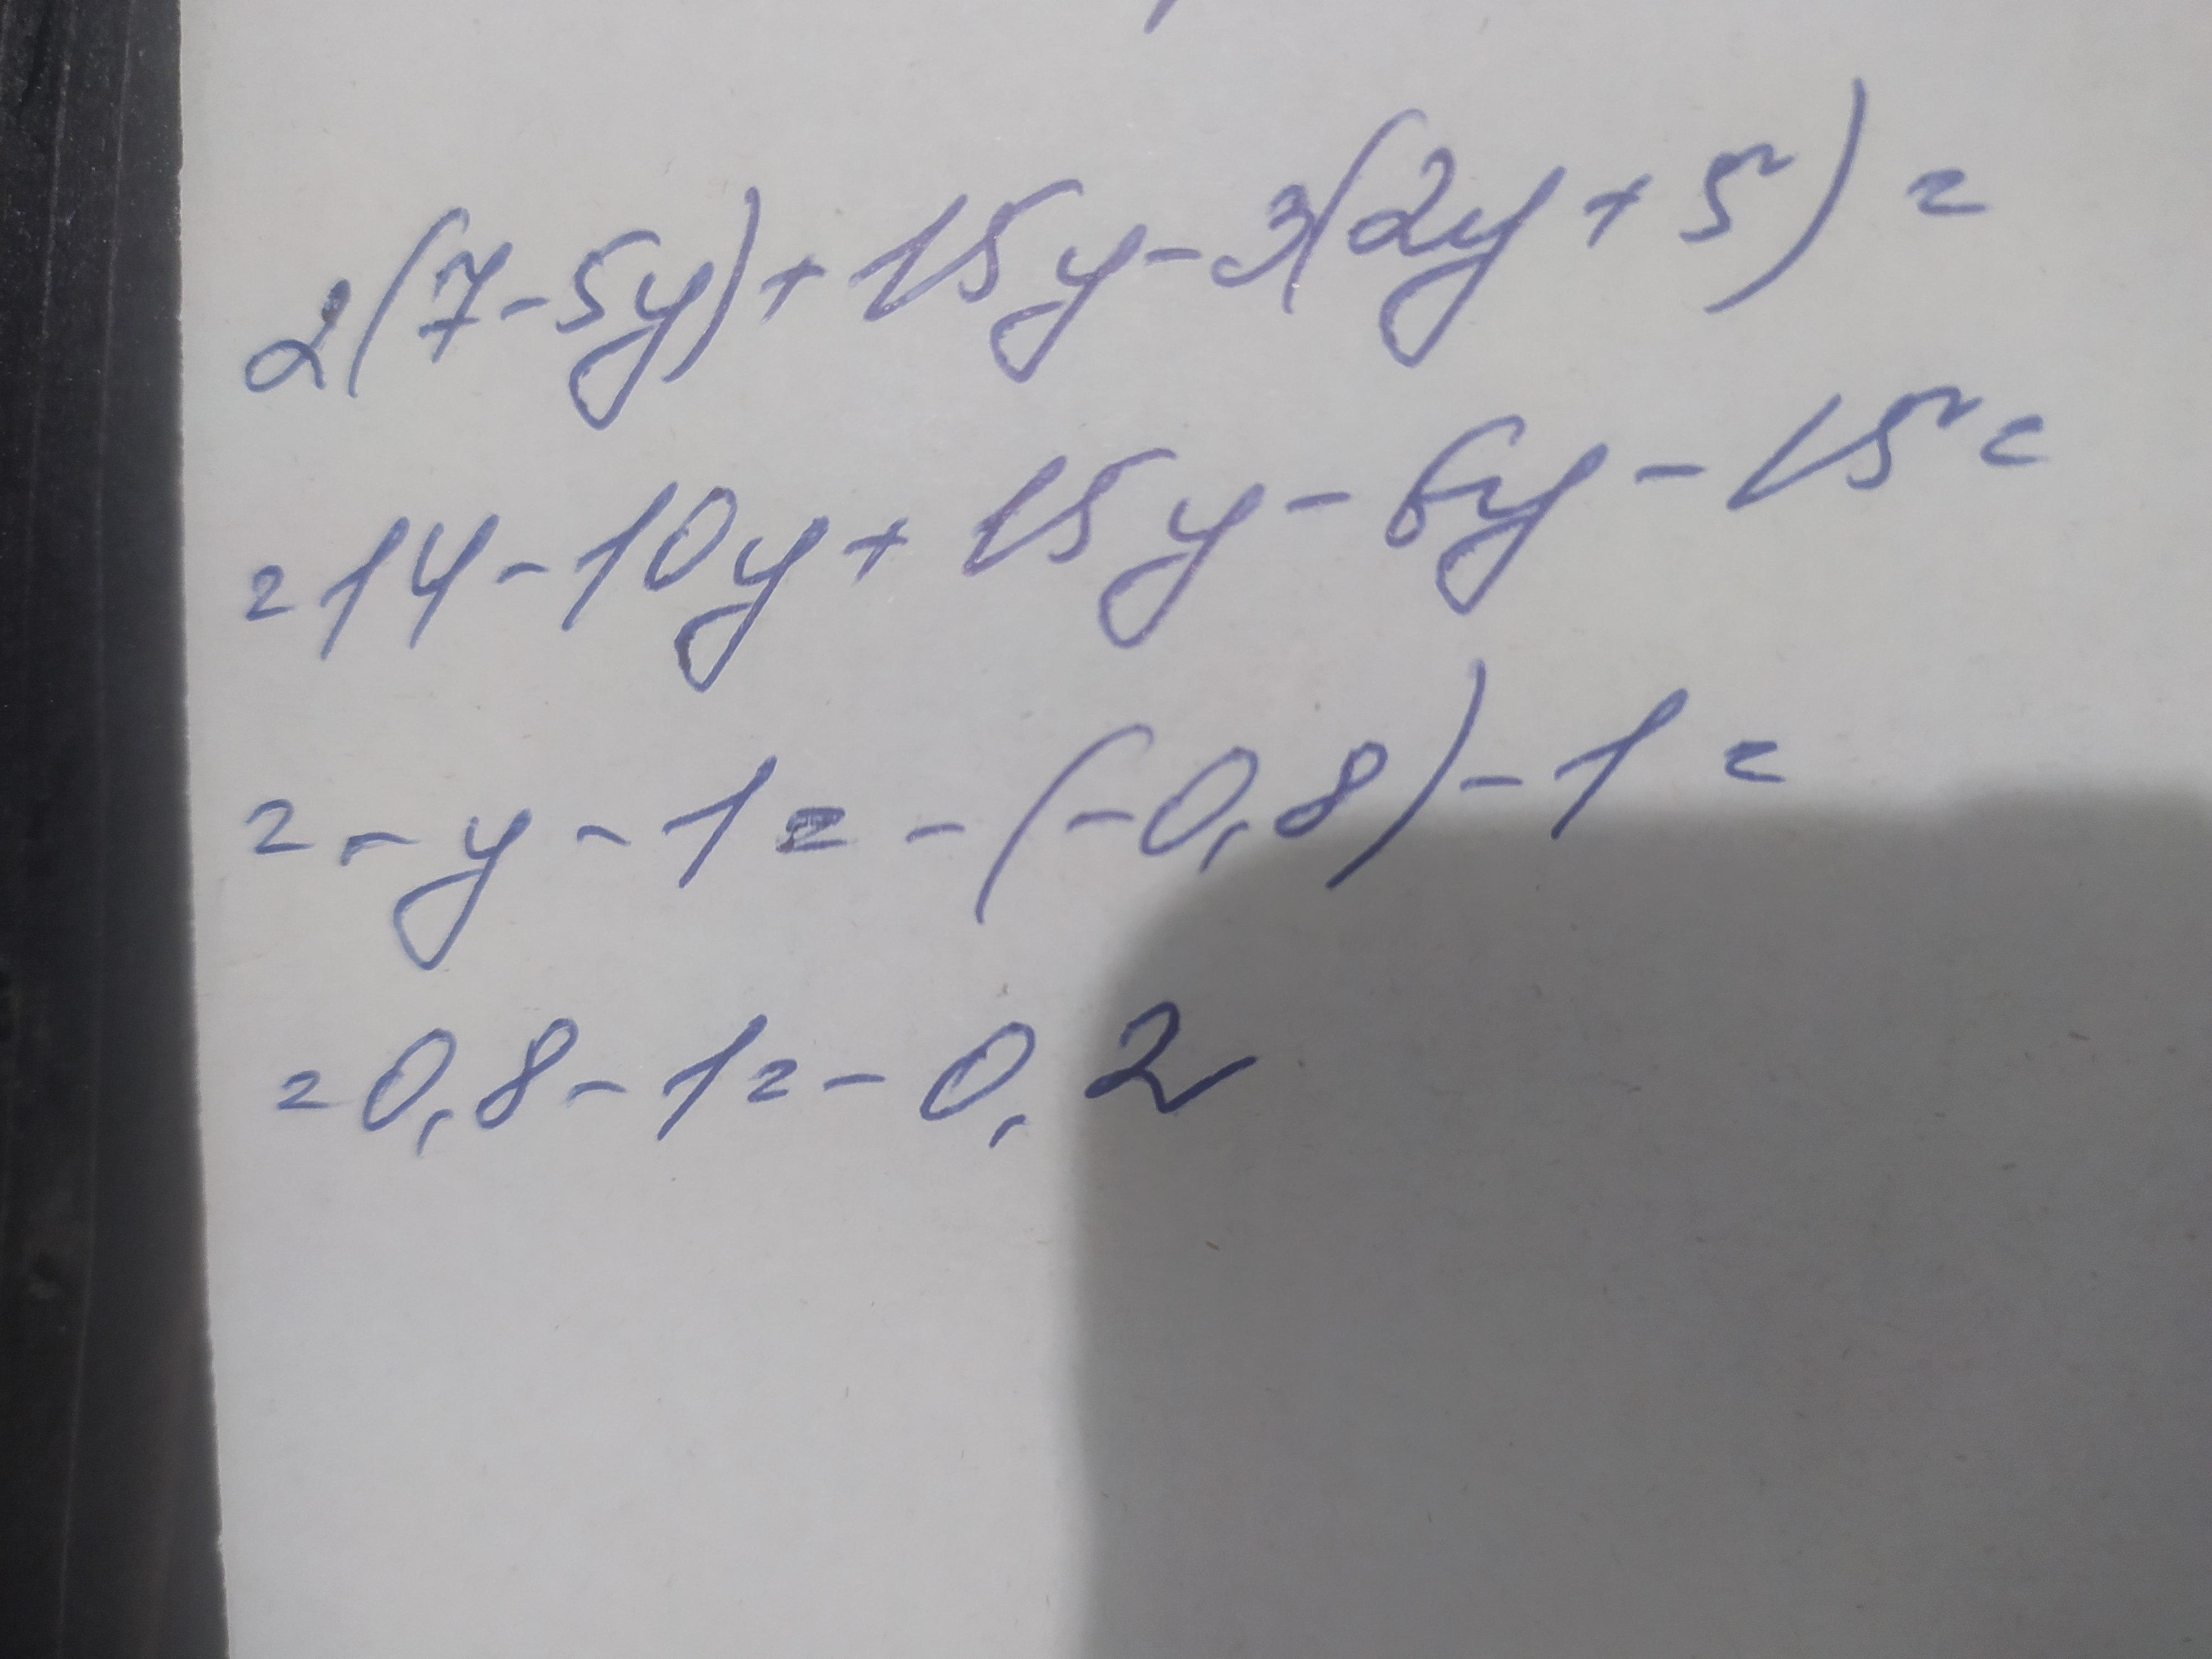 2(7-5y)+15y-3(2y+5)=
=14-10y+15y-6y-15=
=-y-1=-(-0,8)-1=
=0,8-1=-0,2